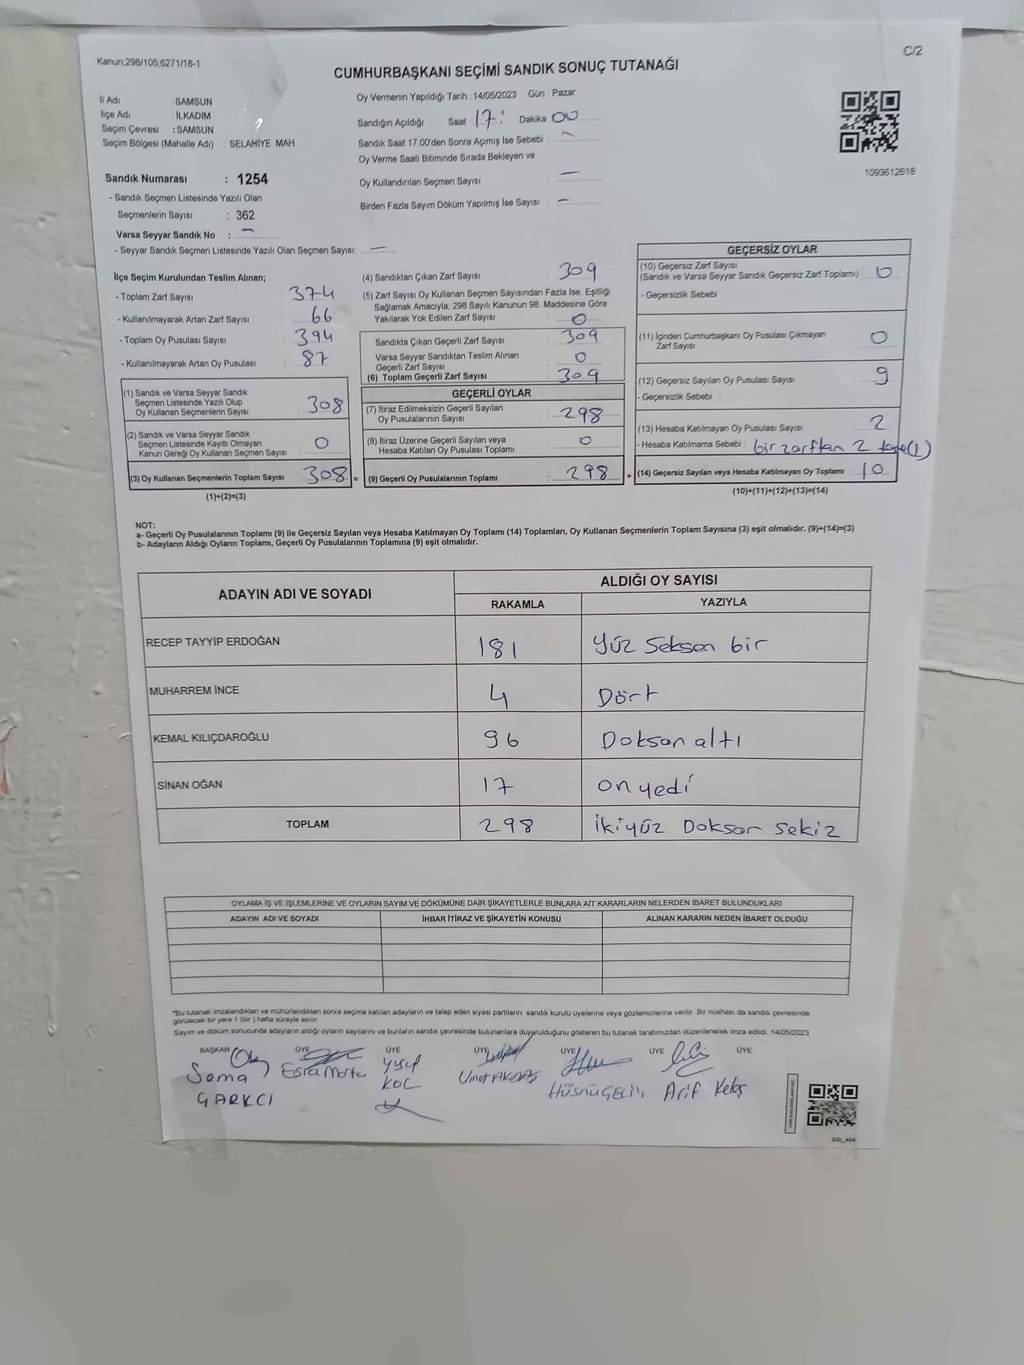 Kanun;298/105;6271/18-1
C/2
CUMHURBAŞKANI SEÇİMİ SANDIK SONUÇ TUTANAĞI
İl Adı : SAMSUN
İlçe Adı : İLKADIM
Seçim Çevresi : SAMSUN
Seçim Bölgesi (Mahalle Adı) : SELAHİYE MAH.
Sandık Numarası : 1254
- Sandık Seçmen Listesinde Yazılı Olan
Seçmenlerin Sayısı : 362
Varsa Seyyar Sandık No : -
- Seyyar Sandık Seçmen Listesinde Yazılı Olan Seçmen Sayısı: -
Oy Vermenin Yapıldığı Tarih : 14/05/2023 Gün : Pazar
Sandığın Açıldığı Saat : 17 : Dakika 00
Sandık Saat 17.00'den Sonra Açımış İse Sebebi : -
Oy Verme Saati Bitiminde Sırada Bekleyen ve
Oy Kullandırılan Seçmen Sayısı : -
Birden Fazla Sayım Döküm Yapılmış İse Sayısı : -
1093612618
İlçe Seçim Kurulundan Teslim Alınan;
- Toplam Zarf Sayısı : 374
- Kullanılmayarak Artan Zarf Sayısı : 66
- Toplam Oy Pusulası Sayısı : 394
- Kullanılmayarak Artan Oy Pusulası : 87
(1) Sandık ve Varsa Seyyar Sandık
Seçmen Listesinde Yazılı Olup
Oy Kullanan Seçmenlerin Sayısı : 308
(2) Sandık ve Varsa Seyyar Sandık
Seçmen Listesinde Kayıtlı Olmayan
Kanun Gereği Oy Kullanan Seçmen Sayısı : 0
(3) Oy Kullanan Seçmenlerin Toplam Sayısı : 308 =
(1)+(2)=(3)
(4) Sandıktan Çıkan Zarf Sayısı : 309
(5) Zarf Sayısı Oy Kullanan Seçmen Sayısından Fazla İse, Eşitliği
Sağlamak Amacıyla, 298 Sayılı Kanunun 98. Maddesine Göre
Yakılarak Yok Edilen Zarf Sayısı : 0
Sandıkta Çıkan Geçerli Zarf Sayısı : 309
Varsa Seyyar Sandıktan Teslim Alınan
Geçerli Zarf Sayısı : 0
(6) Toplam Geçerli Zarf Sayısı : 309
GEÇERLİ OYLAR
(7) İtiraz Edilmeksizin Geçerli Sayılan
Oy Pusulalarının Sayısı : 298
(8) İtiraz Üzerine Geçerli Sayılan veya
Hesaba Katılan Oy Pusulası Toplamı : 0
(9) Geçerli Oy Pusulalarının Toplamı : 298 +
GEÇERSİZ OYLAR
(10) Geçersiz Zarf Sayısı
(Sandık ve Varsa Seyyar Sandık Geçersiz Zarf Toplamı) : 0
- Geçersizlik Sebebi
(11) İçinden Cumhurbaşkanı Oy Pusulası Çıkmayan
Zarf Sayısı : 0
(12) Geçersiz Sayılan Oy Pusulası Sayısı : 9
- Geçersizlik Sebebi :
(13) Hesaba Katılmayan Oy Pusulası Sayısı : 2
- Hesaba Katılmama Sebebi : bir zarftan 2 tane(1)
(14) Geçersiz Sayılan veya Hesaba Katılmayan Oy Toplamı : 10
(10)+(11)+(12)+(13)=(14)
NOT:
a- Geçerli Oy Pusulalarının Toplamı (9) ile Geçersiz Sayılan veya Hesaba Katılmayan Oy Toplamı (14) Toplamları, Oy Kullanan Seçmenlerin Toplam Sayısına (3) eşit olmalıdır. (9)+(14)=(3)
b- Adayların Aldığı Oyların Toplamı, Geçerli Oy Pusulalarının Toplamına (9) eşit olmalıdır.
ADAYIN ADI VE SOYADI
ALDIĞI OY SAYISI
RAKAMLA YAZIYLA
RECEP TAYYİP ERDOĞAN 181 Yüz Seksen bir
MUHARREM İNCE 4 Dört
KEMAL KILIÇDAROĞLU 96 Doksan altı
SİNAN OĞAN 17 on yedi
TOPLAM 298 İkiyüz Doksan sekiz
OYLAMA İŞ VE İŞLEMLERİNE VE OYLARIN SAYIM VE DÖKÜMÜNE DAİR ŞİKAYETLERLE BUNLARA AİT KARARLARIN NELERDEN İBARET BULUNDUKLARI
ADAYIN ADI VE SOYADI İHBAR İTİRAZ VE ŞİKAYETİN KONUSU ALINAN KARARIN NEDEN İBARET OLDUĞU
*Bu tutanak imzalandıktan ve mühürlendikten sonra seçime katılan adayların ve talep eden siyasi partilerin sandık kurulu üyelerine veya gözlemcilerine verilir. Bir nüshası da sandık çevresinde
görülecek bir yere 1 (bir) hafta süreyle asılır.
Sayım ve döküm sonucunda adayların aldığı oyların sayılarını ve bunların sandık çevresinde bulunanlara duyurulduğunu gösteren bu tutanak tarafımızdan düzenlenerek imza edildi. 14/05/2023
BAŞKAN ÜYE ÜYE ÜYE ÜYE ÜYE ÜYE
Sema Esra Yusuf Umut Hüsnü Arif Keleş
KOÇ